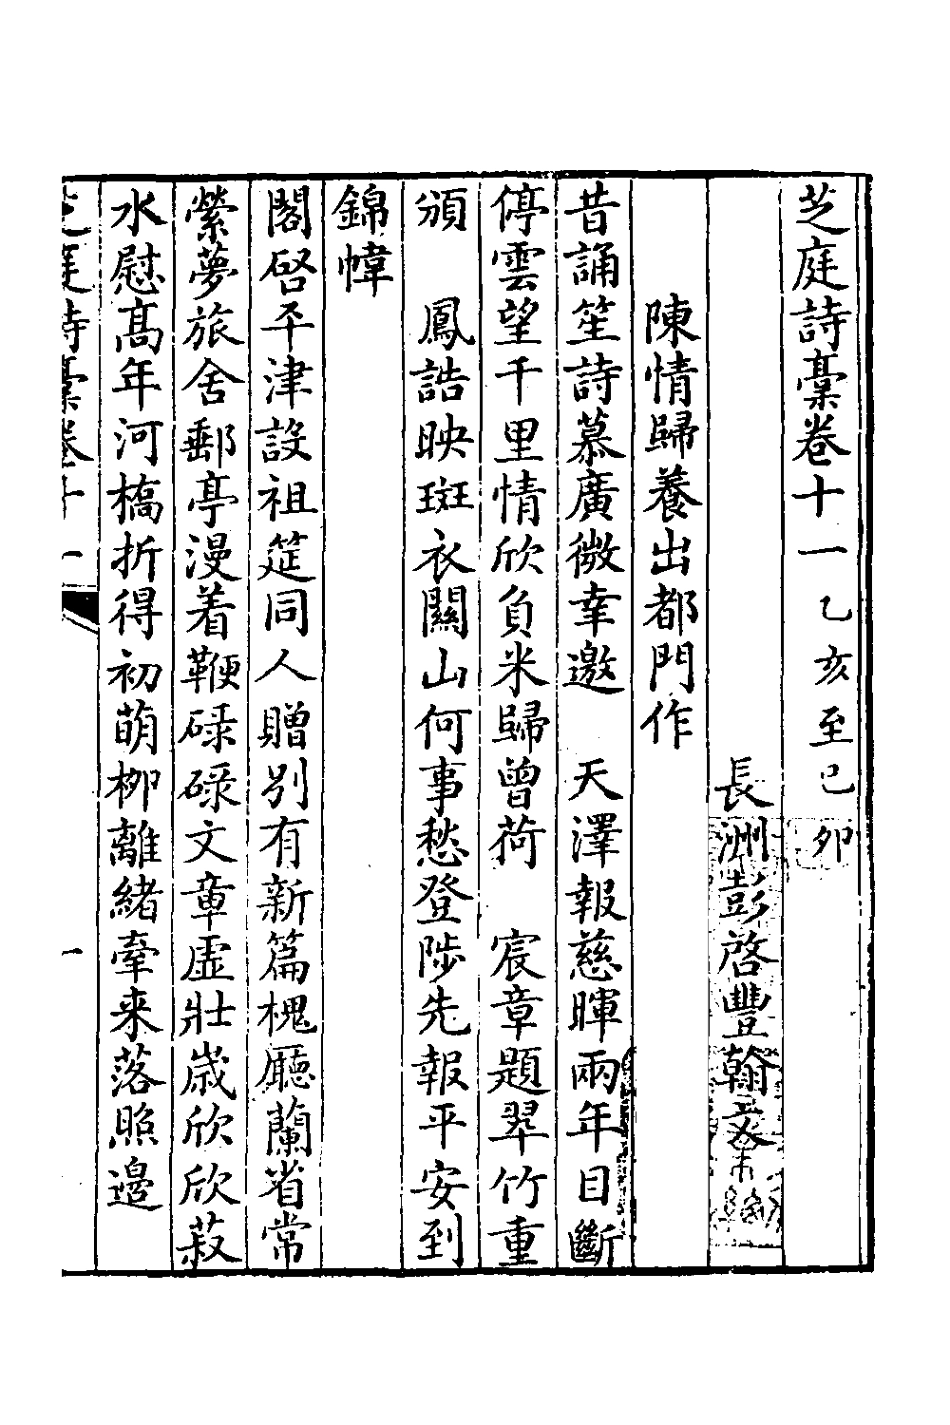 芝庭詩稾卷十一 乙亥至己卯
長洲彭啓豐翰文
陳情歸養出都門作
昔誦笙詩慕廣微幸邀 天澤報慈暉兩年目斷
停雲望千里情欣負米歸曾荷 宸章題翠竹重
頒 鳳誥映斑衣關山何事愁登陟先報平安到
錦幃
閣啓平津設祖筵同人贈別有新篇槐廳蘭省常
縈夢旅舍郵亭漫着鞭碌碌文章虛壯歲欣欣菽
水慰髙年河橋折得初萌柳離緒牽来落照邊
芝庭詩稾卷十一 一